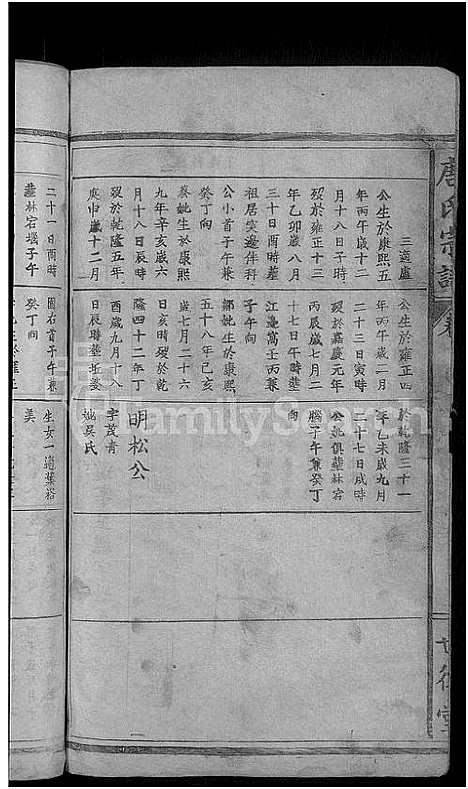 唐氏宗譜
三適盧
公生於康熙五
年丙午歲十二
月十八日子時
歿於雍正十三
年乙卯歲八月
三十日酉時葬
祖居突邊伴科
公小首子午兼
癸丁向
蔡妣生於康熙
九年辛亥歲六
月十八日辰時
歿於乾隆五年
庚申歲十二月
二十一日酉時
葬林宕堰子午
公生於雍正四
年丙午歲二月
二十三日寅時
歿於嘉慶元年
丙辰歲七月二
十七日午時葬
江邊窩壬丙兼
子午向
鄒妣生於康熙
五十八年己亥
歲七月二十六
日亥時歿於乾
隆四十二年丁
酉歲九月十八
日辰時葬坵姜
園右首子午兼
癸丁向
於乾隆三十一
年乙未歲九月
二十三日戌時
公妣俱葬林宕
腦子午兼癸丁
向
明松公
字茂青
妣吳氏
生女一適葉裕
美
FamilySearch